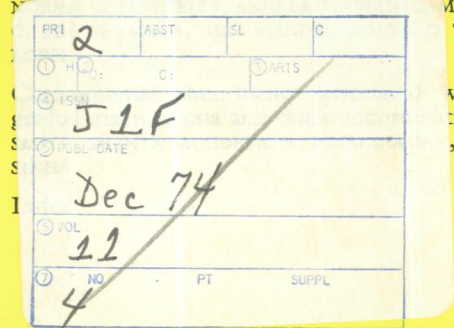 PRI 2 ABST SL C
① H ② C: ③ ARTS
④ ISSN J1F
⑤ PUBL DATE
Dec 74
⑥ VOL
11
⑦ NO PT SUPPL
4